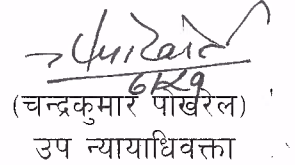 (चन्द्रकुमार पोखरेल)
उप न्यायाधिवक्ता